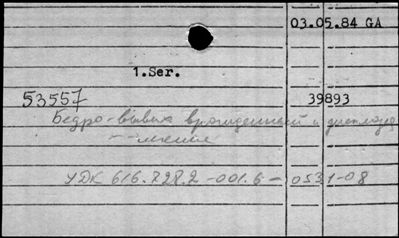 03.05.84 GA
1.Ser.
53557 39893
Бедро - вывих врожденный и
УДК 616.728.2-001.6-053.1-08